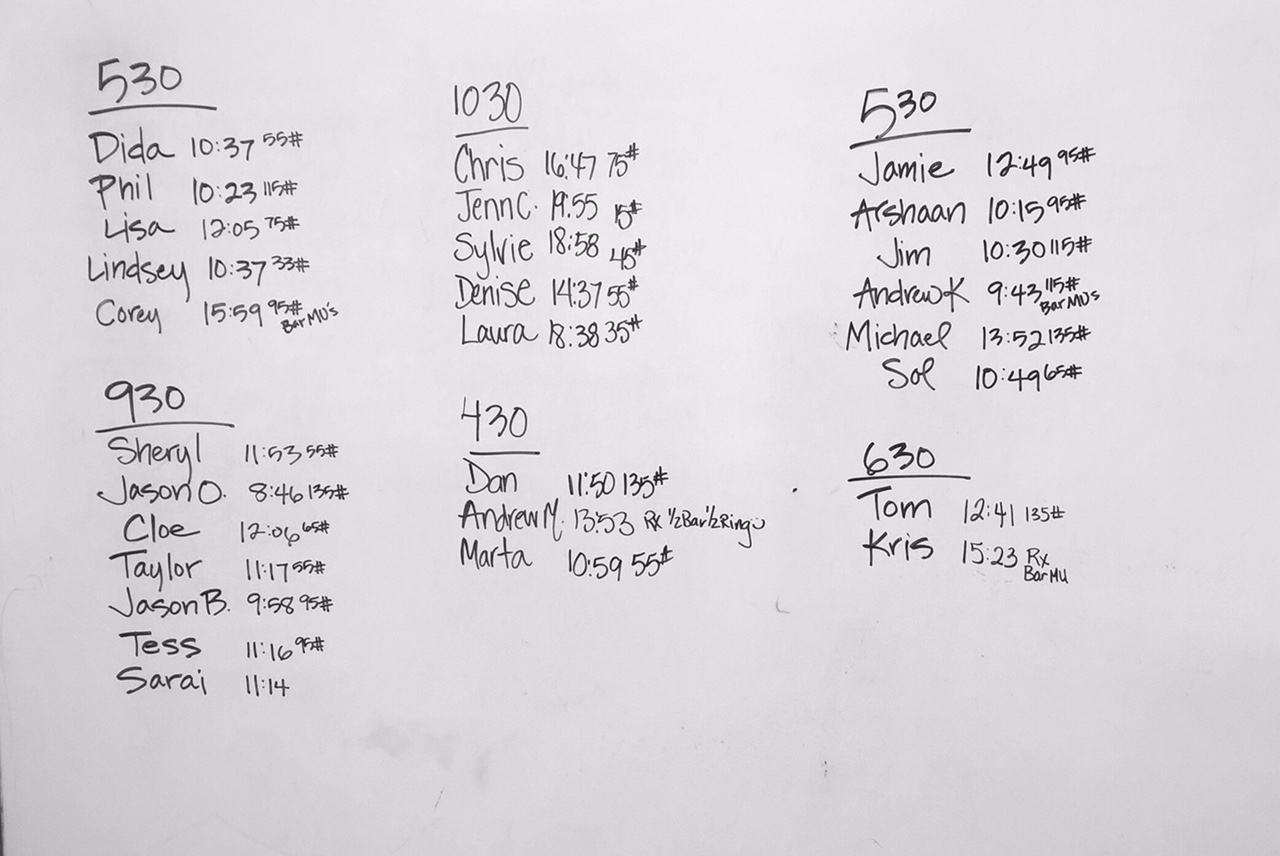 530
Dida 10:37 55#
Phil 10:23 115#
Lisa 12:05 75#
Lindsey 10:37 33#
Corey 15:59 95#
Bar MU's
930
Sheryl 11:53 55#
Jason O. 8:46 135#
Cloe 12:06 65#
Taylor 11:17 55#
Jason B. 9:58 95#
Tess 11:16 95#
Sarai 11:14
1030
Chris 16:47 75#
Jenn C. 19:55 15#
Sylvie 18:58 45#
Denise 14:37 55#
Laura 18:38 35#
430
Dan 11:50 135#
Andrew M. 13:53 Rx ½Bar ½Rings
Marta 10:59 55#
530
Jamie 12:49 95#
Arshaan 10:15 95#
Jim 10:30 115#
Andrew K 9:43 115#
Bar MU's
Michael 13:52 135#
Sol 10:49 65#
630
Tom 12:41 135#
Kris 15:23 Rx
Bar MU